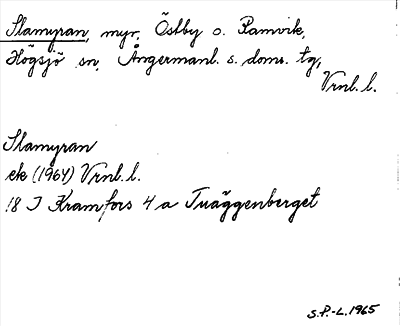 Slamyran, myr, Östby o. Ramvik,
Högsjö sn, Ångermanl. s. doms. tg,
Vrnl. l.
Slamyran
ek (1964) Vrnl. l.
18 J Kramfors 4 a Tväggenberget
S.P.-L. 1965